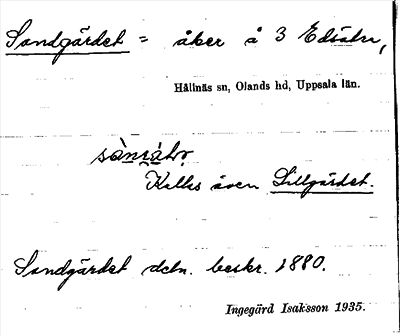 Sandgärdet = åker å 3 Edsätra,
Hållnäs sn, Olands hd, Uppsala län.
Kallas även Lillgärdet.
Sandgärdet detn. beskr. 1880.
Ingegärd Isaksson 1935.